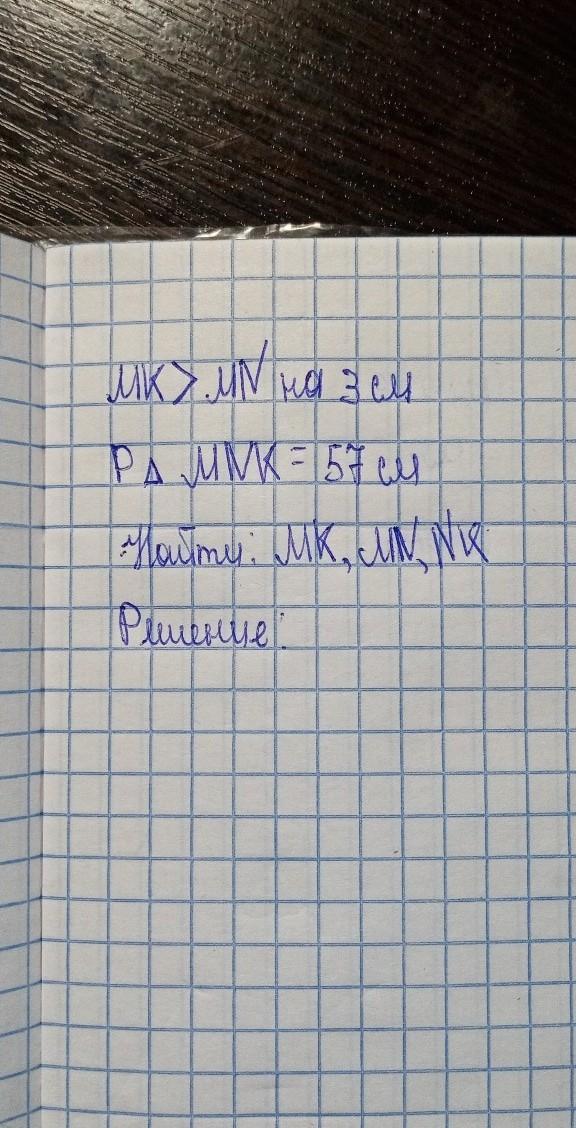 MK > MN на 3 см
P△ MNK = 57 см
Найти: MK, MN, NK
Решение: